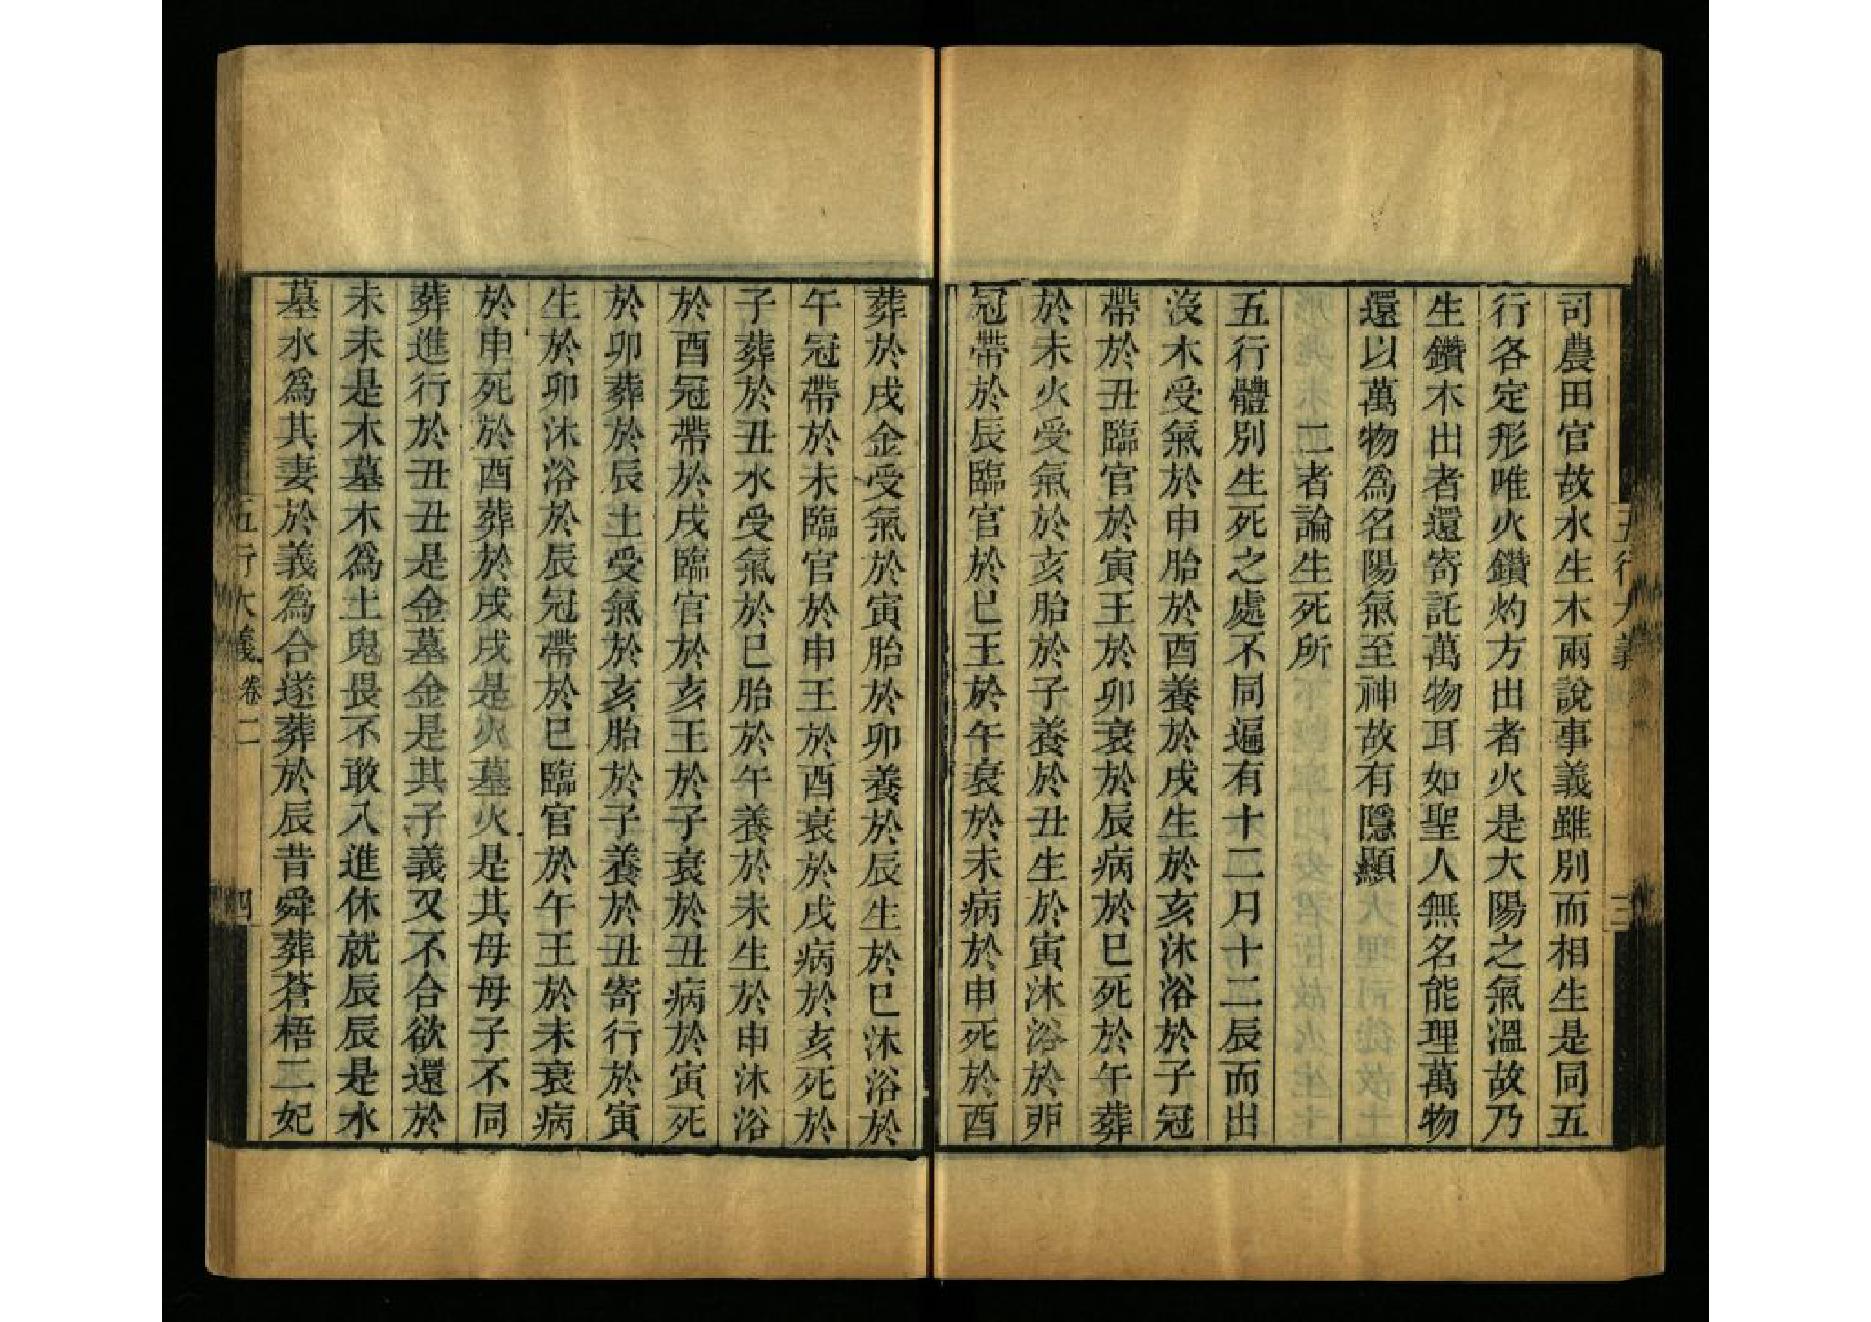 司農田官故水生木兩說事義雖別而相生是同五
行各定形唯火鑽灼方出者火是大陽之氣溫故乃
生鑽木出者還寄託萬物耳如聖人無名能理萬物
還以萬物爲名陽氣至神故有隱顯
二者論生死所
五行體別生死之處不同遍有十二月十二辰而出
沒木受氣於申胎於酉養於戌生於亥沐浴於子冠
帶於丑臨官於寅王於卯衰於辰病於巳死於午葬
於未火受氣於亥胎於子養於丑生於寅沐浴於卯
冠帶於辰臨官於巳王於午衰於未病於申死於酉
葬於戌金受氣於寅胎於卯養於辰生於巳沐浴於
午冠帶於未臨官於申王於酉衰於戌病於亥死於
子葬於丑水受氣於巳胎於午養於未生於申沐浴
於酉冠帶於戌臨官於亥王於子衰於丑病於寅死
於卯葬於辰土受氣於亥胎於子養於丑寄行於寅
生於卯沐浴於辰冠帶於巳臨官於午王於未衰病
於申死於酉葬於戌戌是火墓火是其母母子不同
葬進行於丑丑是金墓金是其子義又不合欲還於
未未是木墓木爲土鬼畏不敢入進休就辰辰是水
墓水爲其妻於義爲合遂葬於辰昔舜葬蒼梧二妃
五行大義 三
五行大義 卷二 四